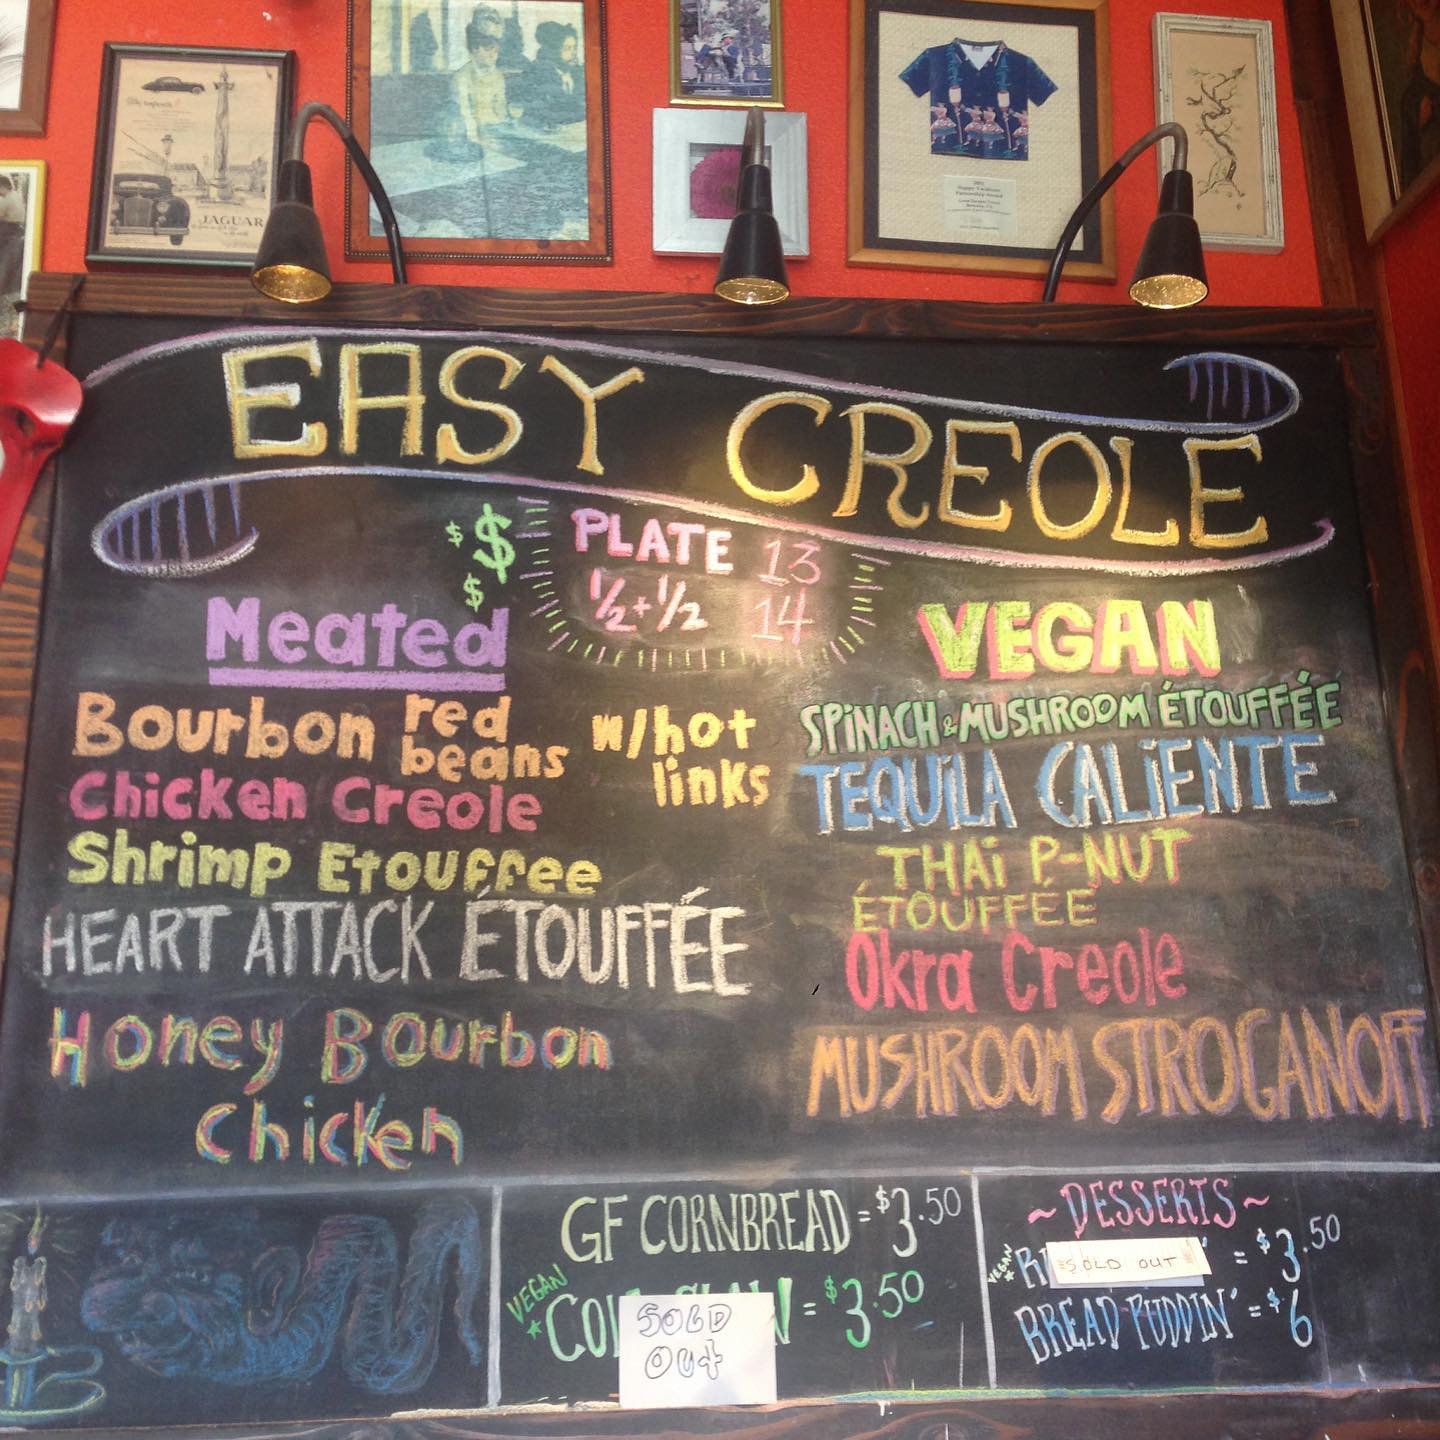 JAGUAR
EASY CREOLE
$ $ $
PLATE 13
1/2+1/2 14
Meated
Bourbon red beans w/hot links
Chicken Creole
Shrimp Etouffee
HEART ATTACK ÉTOUFFÉE
Honey Bourbon
Chicken
VEGAN
SPiNACH & MUSHROOM ÉTOUFFÉE
TEQUiLA CALiENTE
THAi P-NUT
ÉTOUFFÉE
Okra Creole
MUSHROOM STROGANOFF
GF CORNBREAD = $3.50
VEGAN
= $3.50
SOLD
OUt
~ DESSERTS ~
VEGAN
= $3.50
SOLD OUT
BREAD PUDDIN' = $6